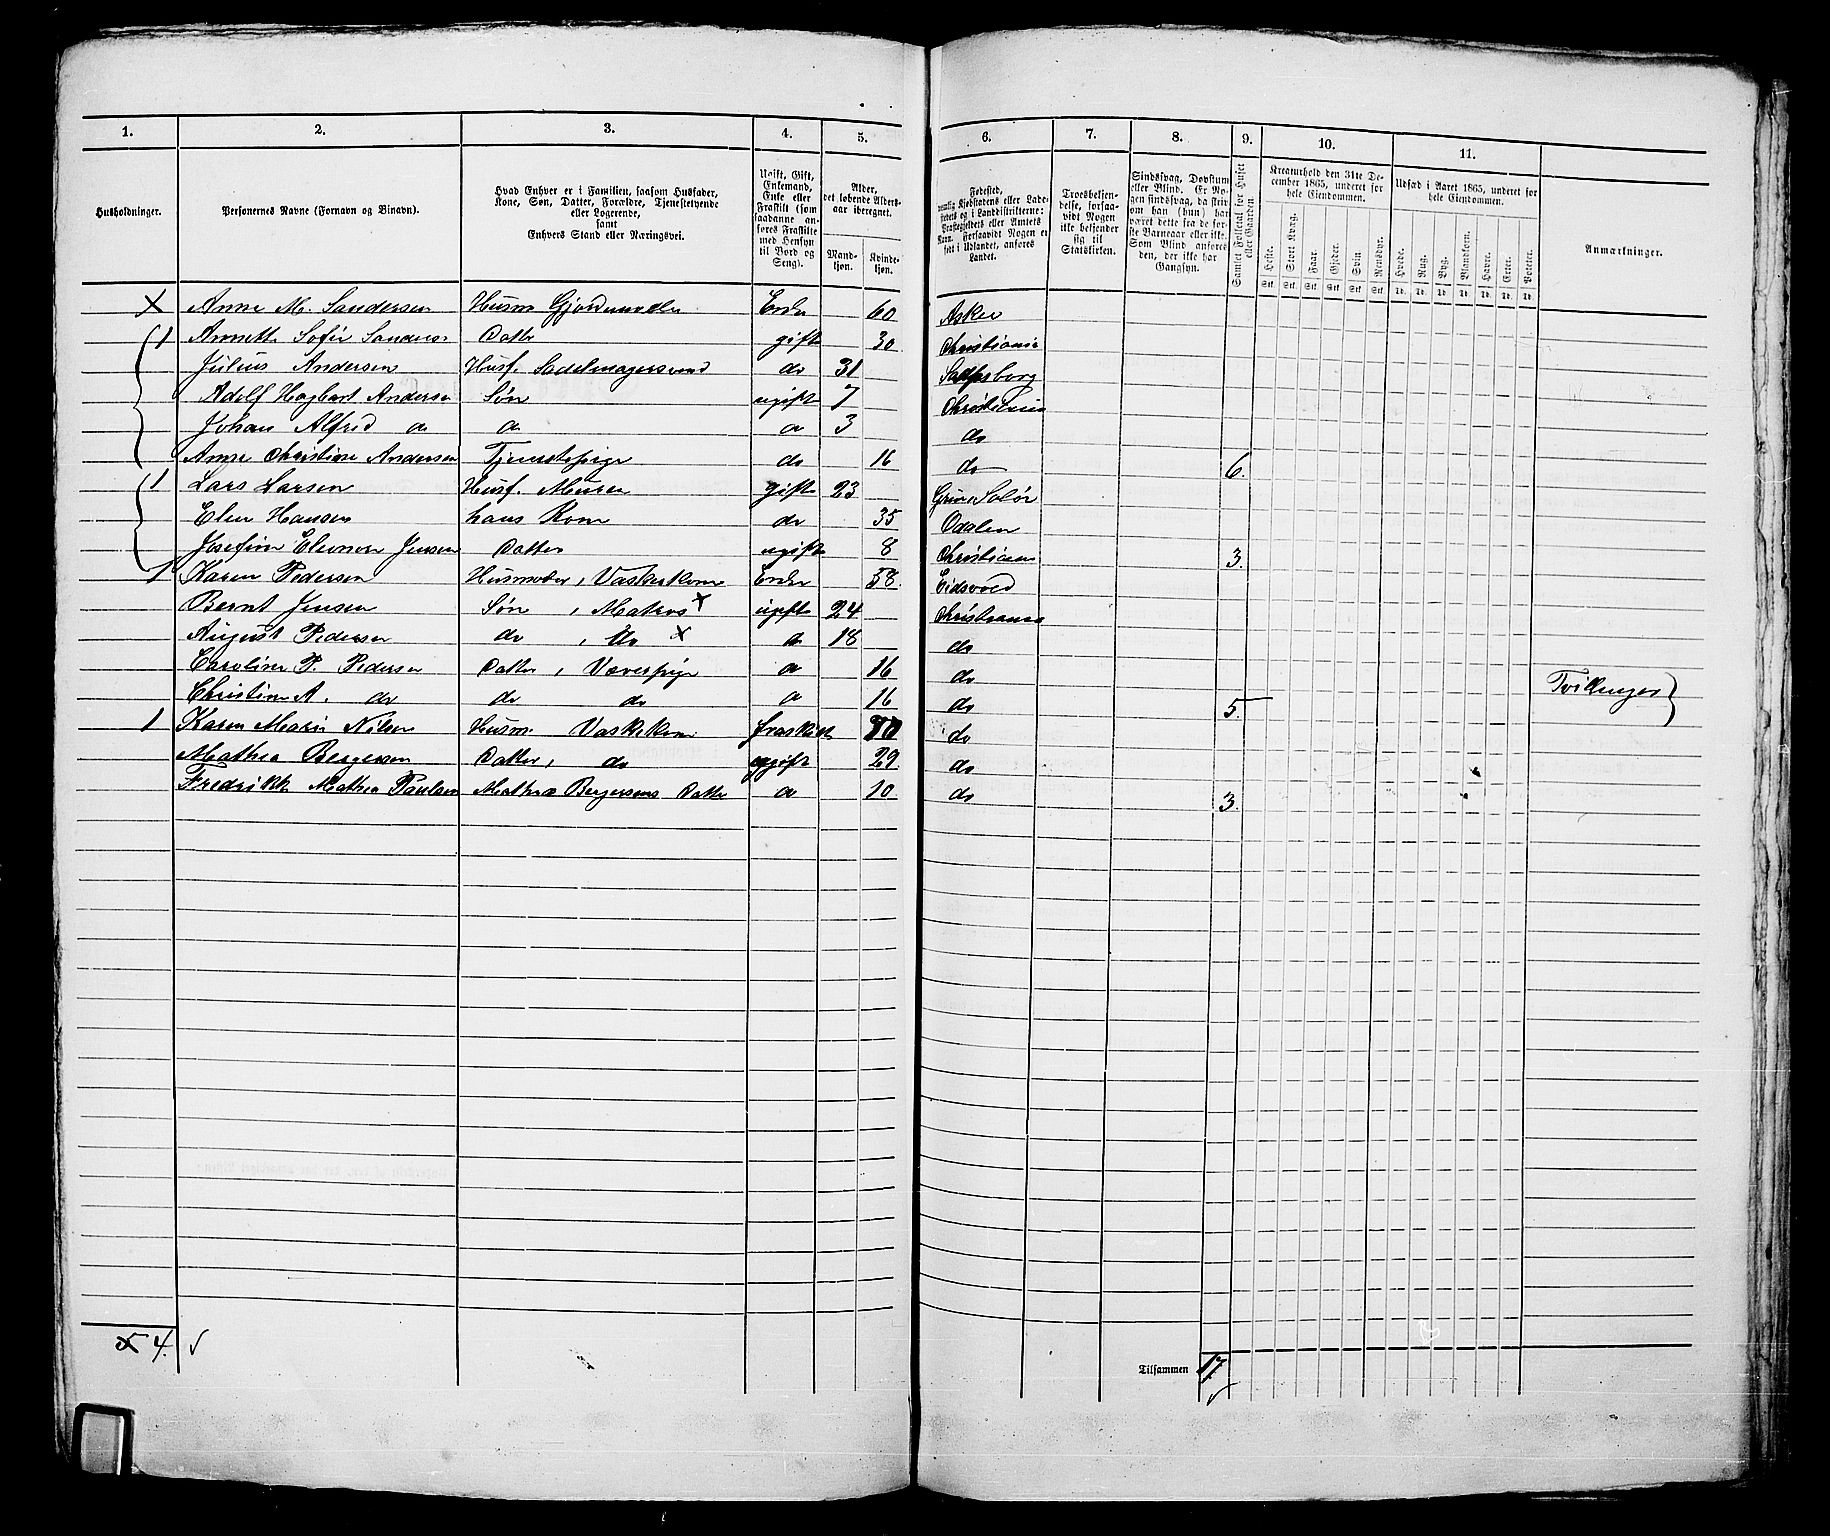 1. 2. 3. 4. 5. 6. 7. 8. 9. 10. 11.
Husholdninger.
Personernes Navne (Fornavn og Binavn).
Hvad Enhver er i Familien, saasom Husfader,
Kone, Søn, Datter, Forældre, Tjenestetyende
eller Logerende,
samt
Enhvers Stand eller Næringsvei.
Ugift, Gift,
Enkemand,
Enke eller
Fraskilt (som
saadanne an-
føres Fraskilte
med Hensyn
til Bord og
Seng).
Alder,
det løbende Alders-
aar iberegnet.
Mand-
kjøn.
Kvinde-
kjøn.
Fødested,
nemlig Kjøbstadens eller Lade-
stedets og i Landdistrikterne:
Præstegjeldets eller Amtets
Navn. Forsaavidt Nogen er
født i Udlandet, anføres
Landet.
Troesbekjen-
delse, forsaa-
vidt Nogen
ikke bekjender
sig til
Statskirken.
Sindssvag, Døvstum
eller Blind. Er No-
gen sindssvag, da skriv
om han (hun) har
været dette fra de for-
ste Barneaar eller ikke.
Som Blind anføres
den, der ikke har
Gangsyn.
Samlet Folketal for Huset
eller Gaarden.
Kreaturhold den 31te De-
cember 1865, underet for
hele Eiendommen.
Heste. Stort Kvæg. Faar. Gjeder. Svin. Rensdyr.
Stk. Stk. Stk. Stk. Stk. Stk.
Udsæd i Aaret 1865, underet for
hele Eiendommen.
Hvede. Rug. Byg. Blandkorn. Havre. Erter. Poteter.
Td. Td. Td. Td. Td. Td. Td.
Anmærkninger.
x Anne M. Sandersen Husm Gjordemoder Enke 60 Asker
1 Annette Sofie Sanders Datter gift 30 Christiania
Julius Andersen Husf. Sadelmagersvend do 31 Sarpsborg
Adolf Hagbart Andersen Søn ugift 7 Christiania
Johan Alfred do do do 3 do
Anne Christine Andersen Tjenestepige do 16 do 6.
1 Lars Larsen Husf. Murer gift 23 Grue Solør
Elen Hansen hans Kone do 35 Odalen
Josefine Eleonore Jensen Datter ugift 8 Christiania 3.
1 Karen Pedersen Husmoder, Vaskerkone Enke 58 Eidsvold
Bernt Jensen Søn, Matros x ugift 24 Christiania
August Pedersen do, do x do 18 do
Caroline P. Pedersen Datter, Væverpige do 16 do
Christine A. do do do do 16 do 5. Tvillinger
1 Karen Marie Nilsen Husm Vaskekone fraskilt do
Mathea Bergersen Datter, do ugift 29 do
Fredrikke Mathea Paulsen Mathea Bergersens Datter do 10 do 3.
x 4. √
Tilsammen 17 √